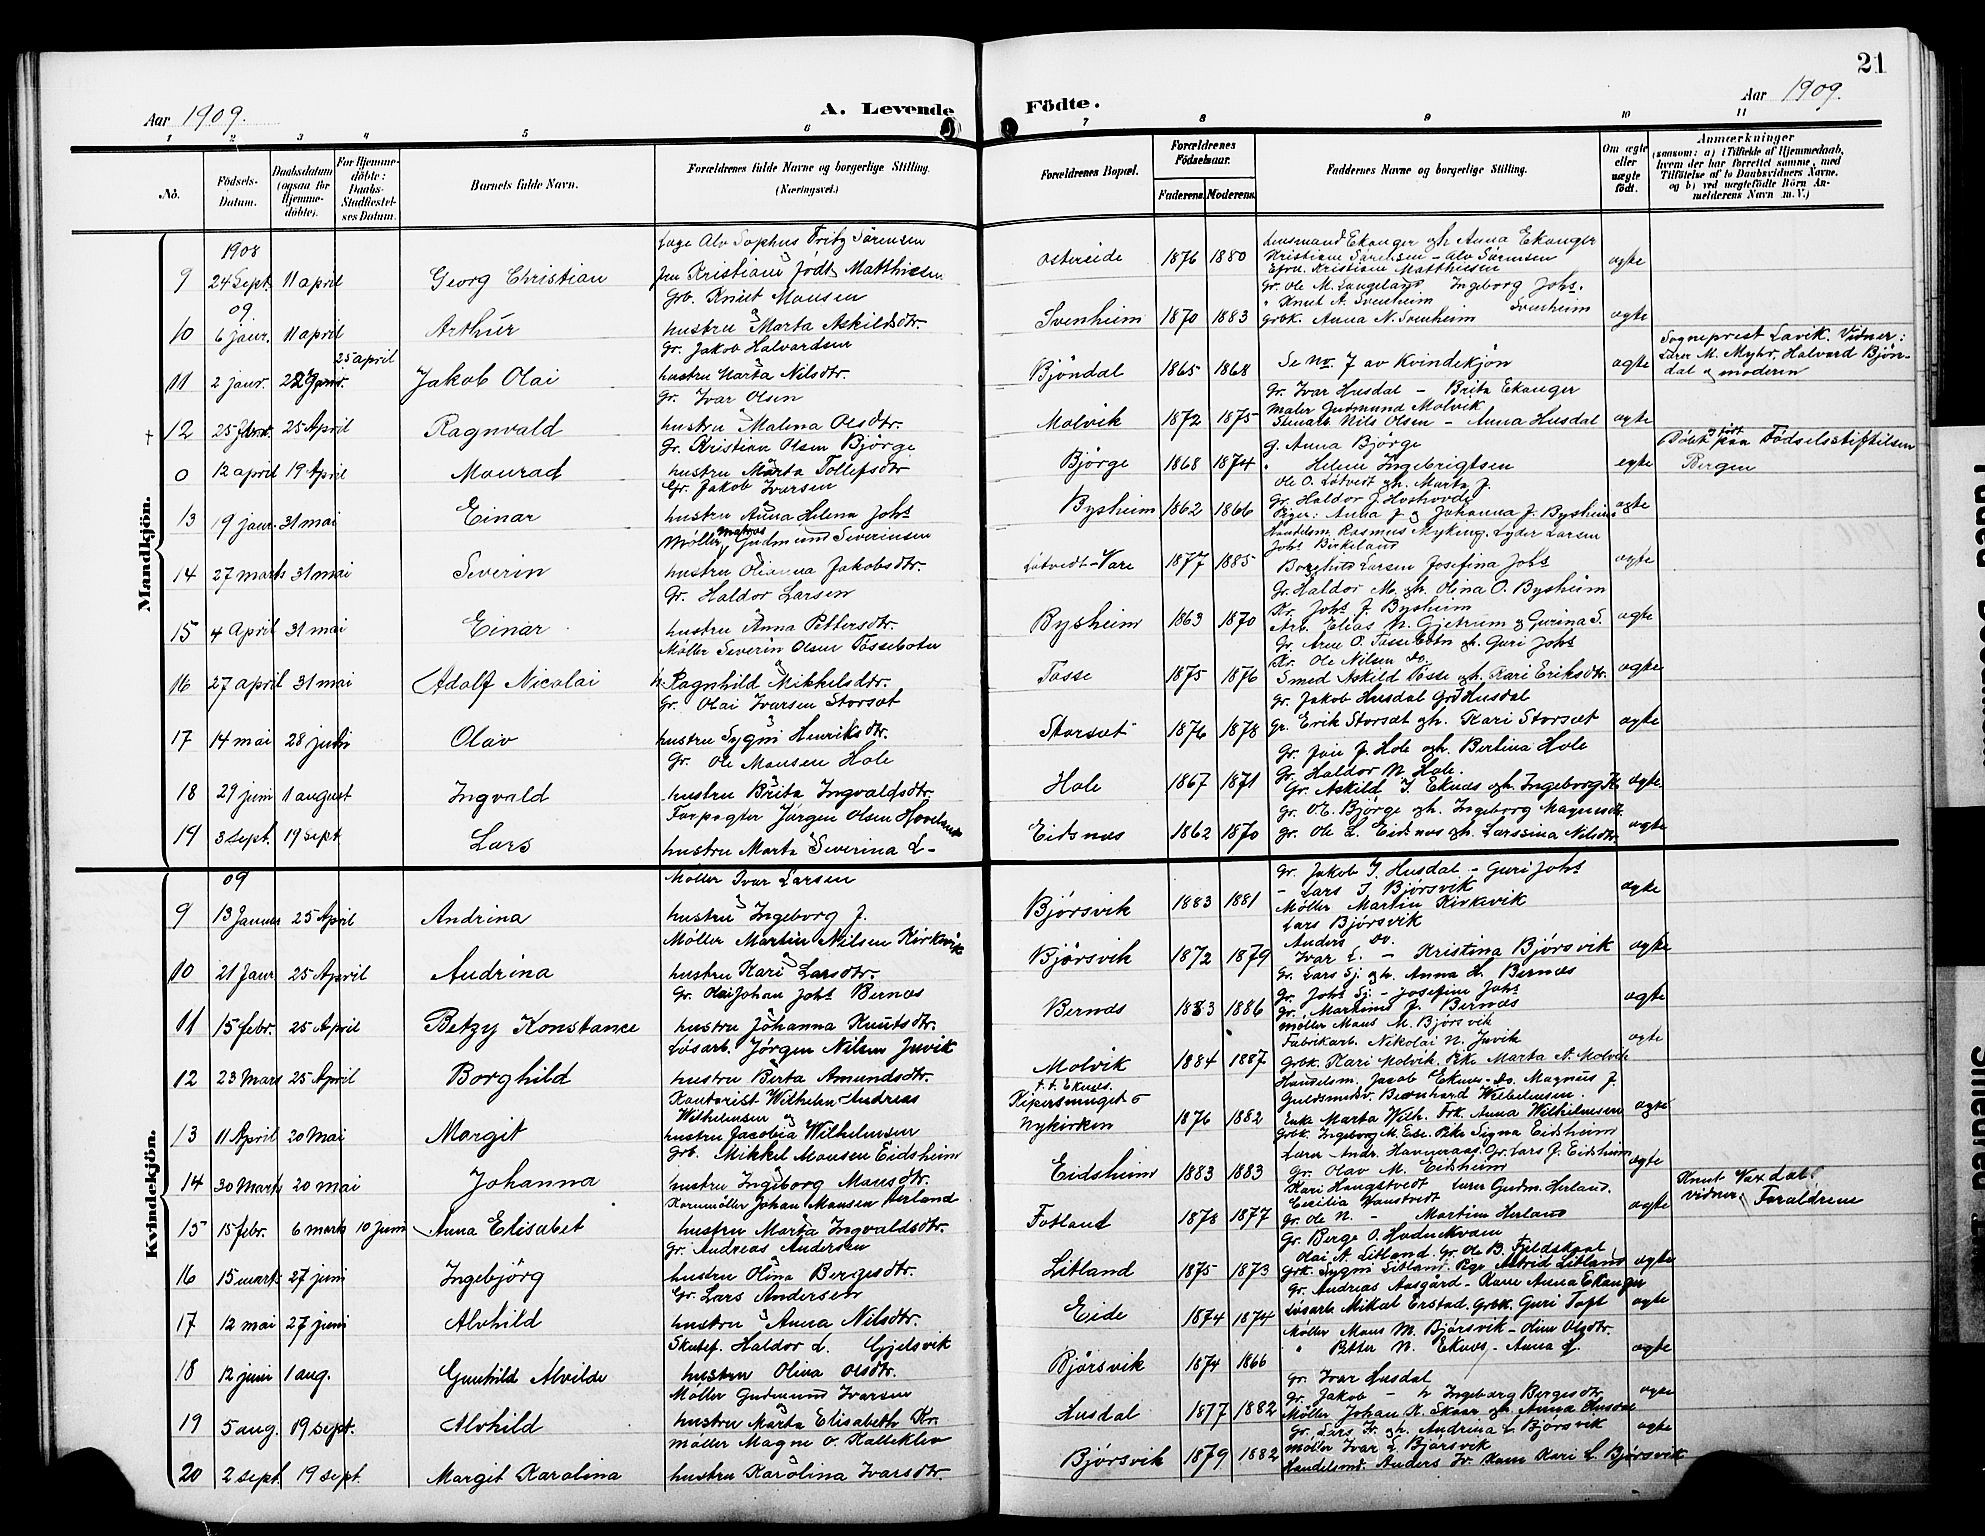 21
Aar 1909.
A. Levende Födte.
Aar 1909.
1 2 3 4 5 6 7 8 9 10 11
No.
Födsels-Datum.
Daabsdatum (ogsaa for Hjemme-döbte).
For Hjemme-döbte: Daabs-Stadfæstel-ses Datum.
Barnets fulde Navn.
Forældrenes fulde Navne og borgerlige Stilling. (Næringsvei.)
Forældrenes Bopæl.
Forældrenes Födselsaar.
Faderens. Moderens.
Faddernes Navne og borgerlige Stilling.
Om ægte eller uægte födt.
Anmærkninger
(saasom: a) i Tilfælde af Hjemmedaab,
hvem der har forrettet samme, med
Tilföielse af to Daabsvidners Navne,
og b) ved uægtefödte Börn An-
melderens Navn m. V.)
Mandkjön.
1908
9 24 Sept. 11 april Georg Christian
Læge Alv Sophus Fritz Sørensen
fru Kristiane født Matthiesen
Osterside 1876 1880
Lensmand Ekanger og h. Anna Ekanger
Kristiane Sørensen - Alv Sørensen
Efru. Kristiane Matthiesen
ægte
09.
10 6 janr. 11 april Arthur
Grb. Knut Monsen
og hustru Marta Askildsdtr.
Svenheim 1870 1883
Gr. Ole M. Langeland Ingeborg Johs.
" Knut A. Svenheim Svenheim
Grbk. Anna N. Svenheim
ægte
25 april
11 2 janr. 22 Janr. Jakob Olai
Gr. Jakob Halvardsen
og hustru Marta Nilsdtr.
Bjöndal 1865 1868
Se no. 7 av Kvindekjön
ægte
Sogneprest Lavik. Vidner:
Lærer M. Myhr, Halvard Bjön-
dal og moderen
12 25 febr. 25 April Ragnvald
Gr. Ivar Olsen
og hustru Malena Olsdtr.
Molvik 1872 1875
Gr. Ivar Husdal - Brita Ekanger
Maler Gudmund Molvik
Nils Olsen - Anna Husdal
ægte
0 12 april 19 April Monrad
Gr. Kristian Olsen Björge
og hustru Marta Tollefsdtr
Björge 1868 1874
g. Anna Björge
" Helene Ingebrigtsen
egte
Døbt og født paa Födselsstiftelsen
Bergen
13 19 janr. 31 mai Einar
Gr. Jakob Ivarsen
hustru Anna Helena Johs
Bysheim 1862 1866
Ole O. Løtvedt og h. Marta J.
Gr. Haldor J.
Piger: Anna J og Johanna J. Bysheim
ægte
14 27 marts 31 mai Severin
Møller Gudmund Severinsen
hustru Olianna Jakobsdtr.
Løtvedt-Vare 1877 1885
Handelsm. Rasmus Myking. Lyder Larsen
Johs Birkeland
Larsen Josefina Johs
ægte
15 4 April 31 mai Einar
Gr. Haldor Larsen
hustru Anna Pettersdtr.
Bysheim 1863 1870
Gr. Haldor M. og h. Olina O. Bysheim
Kr. Johs J. Bysheim
Arb. Elias N. Gjetrum og Gurina S.
ægte
16 27 april 31 mai Adolf Nicolai
Møller Severin Olsen Tossebotn
og h. Ragnhild Mikkelsdtr.
Tosse 1875 1876
Gr. Arne O. Tossebotn og h. Guri Johs
Kr. Ole Nilsen do.
Smed Askild Tosse og h. Kari Eriksdtr.
ægte
17 14 mai 28 juni Olav
Gr. Olai Ivarsen Storset
hustru Sygni Henriksdtr.
Storset 1876 1878
Gr. Jakob Husdal Gro Husdal
Gr. Erik Storset og h. Kari Storset
ægte
18 29 juni 1 august Ingvald
Gr. Ole Monsen Hole
og hustru Brita Ingvaldsdtr.
Hole 1867 1871
Gr. Jon J. Hole og h. Bertina Hole
Gr. Haldor N. Hole.
Gr. Askild I. Eknes og h. Ingeborg K.
ægte
19 3 sept. 19 sept. Lars
Forpagter Jørgen Olsen
hustru Marta Severina L-
Eidsnes 1862 1870
Gr. O. E. Björge og h. Ingeborg
Gr. Ole L. Eidsnes og h. Larssina Nilsdtr.
ægte
Kvindekjön.
09
9 13 Januar 25 April Andrina
Møller Ivar Larsen
og hustru Ingeborg J.
Bjørsvik 1883 1881
Gr. Jakob I. Husdal - Guri Johs
- Lars I. Bjørsvik
Møller Martin Kirkvik
ægte
10 21 Janr. 25 April Andrina
Møller Martin Nilsen Kirkevik
og hustru Kari Larsdtr.
Bjørsvik 1872 1879
Lars Bjørsvik
Anders do.
Ivar L. - Kristina Bjørsvik
ægte
11 15 febr. 25 April Betzy Konstance
Gr. Olai Johan Johs Bernes
og hustru Johanna Knutsdtr.
Bernes 1883 1886
Gr. Lars Sj. og h. Anna H. Bernes
Gr. Johs Sj. - Josefine Johs
Gr. Martinus J. Bernes
ægte
12 23 Mars 25 April Borghild
Løsarb. Jørgen Nilsen Juvik
hustru Berta Amundsdtr.
Molvik 1884 1887
Møller Mons M. Bjørsvik
Fabrikarb. Nikolai N. Juvik
Grbk. Kari Molvik. Pike Marta A. Molvik
ægte
13 11 April 20 Mai Margit
Kontorist Wilhelm Andreas
Wilhelmsen og
hustru Jacobia Wilhelmsen
t. t. Eknes.
Nykirken 1876 1882
Handelsm. Jacob Eknes. do. Magnus J.
Guldsmedsv. Bernhard Wilhelmsen.
Enke Marta Wilh. Frk. Anna Wilhelmsen
ægte
14 30 Marts 20 mai Johanna
Grb. Mikkel Monsen Eidsheim
hustru Ingeborg Monsdtr.
Eidsheim 1883 1883
Grbk. Ingeborg M. Eise. Pike Signa Eidsheim
Lærer Andr. Gr. Lars J. Eidsheim
Gr. Olav M. Eidsheim
ægte
15 15 febr. 6 marts 10 juni Anna Elisabet
Kornmøller Johan Monsen Herland
og hustru Marta Ingvaldsdtr.
Fotland 1878 1877
Kari Haugstvedt Lærer Gudm. Herland.
Cecilia
Gr. Ole N. - Martin Herland
ægte
Knut Vaxdal
vidner Forældrene
16 15 mart. 27 juni Ingebjörg
Gr. Andreas Andersen
hustru Olina Bergesdtr.
Litland 1875 1873
Gr. Berge O.
Olai A. Litland. Gr. Ole B. Fjeldskaal
Grk. Sygni Litland. Pige Astrid Litland
ægte
17 12 mai 27 juni Alvhild
Gr. Lars Andersen
og hustru Anna Nilsdtr.
Eide 1874 1874
Gr. Andreas Aasgård - Kone Anna Ekanger
Løsarb. Mikal Erstad. Grbk. Guri Toft
ægte
18 12 juni 1 aug. Gunhild Alvilde
Haldor L. Gjelsvik
hustru Olina Olsdtr.
Bjørsvik 1874 1866
Møller Mons M. Bjørsvik - Oline Olsdtr.
" Petter N. Eknes - Anna
ægte
19 5 aug. 19 sept. Alvhild
Møller Gudmund Ivarsen
og hustru Marta Elisabeth Kr.
Husdal 1877 1882
Gr. Ivar Husdal
Gr. Jakob - h Ingeborg Bergesdtr.
Møller Johan K. Skaar og h. Anna Husdal
ægte
20 2 sept. 19 sept. Margit Karolina
Møller Magne O. Kalleklev
hustru Karolina Ivarsdtr.
Bjørsvik 1879 1882
Gr. Lars Iv. og h. Andrina L Bjørsvik
Møller Ivar L. Bjørsvik
Handelsmd. Anders Iv. Kone Kari L. Bjørsvik
ægte